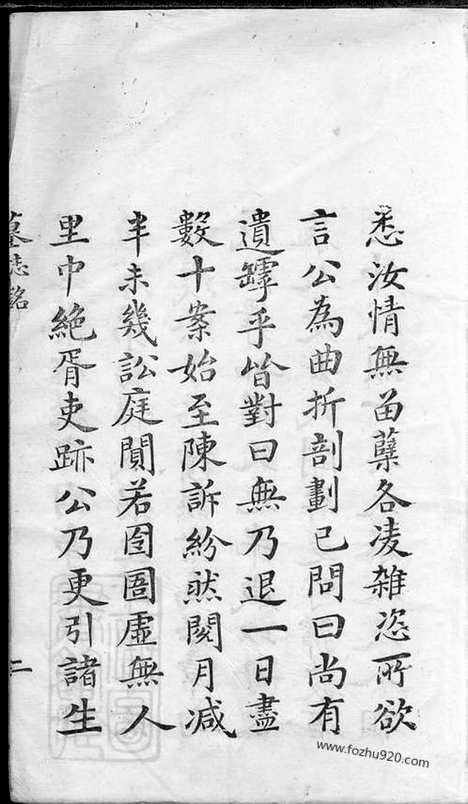 悉汝情無畱蘖各凌雜恣所欲
言公為曲折剖劃已問曰尚有
遺罅乎皆對曰無乃退一日盡
數十案始至陳訴紛然閱月減
半未幾訟庭閴若囹圄虛無人
里中絕胥吏跡公乃更引諸生
墓志銘
二
www.fozhu920.com